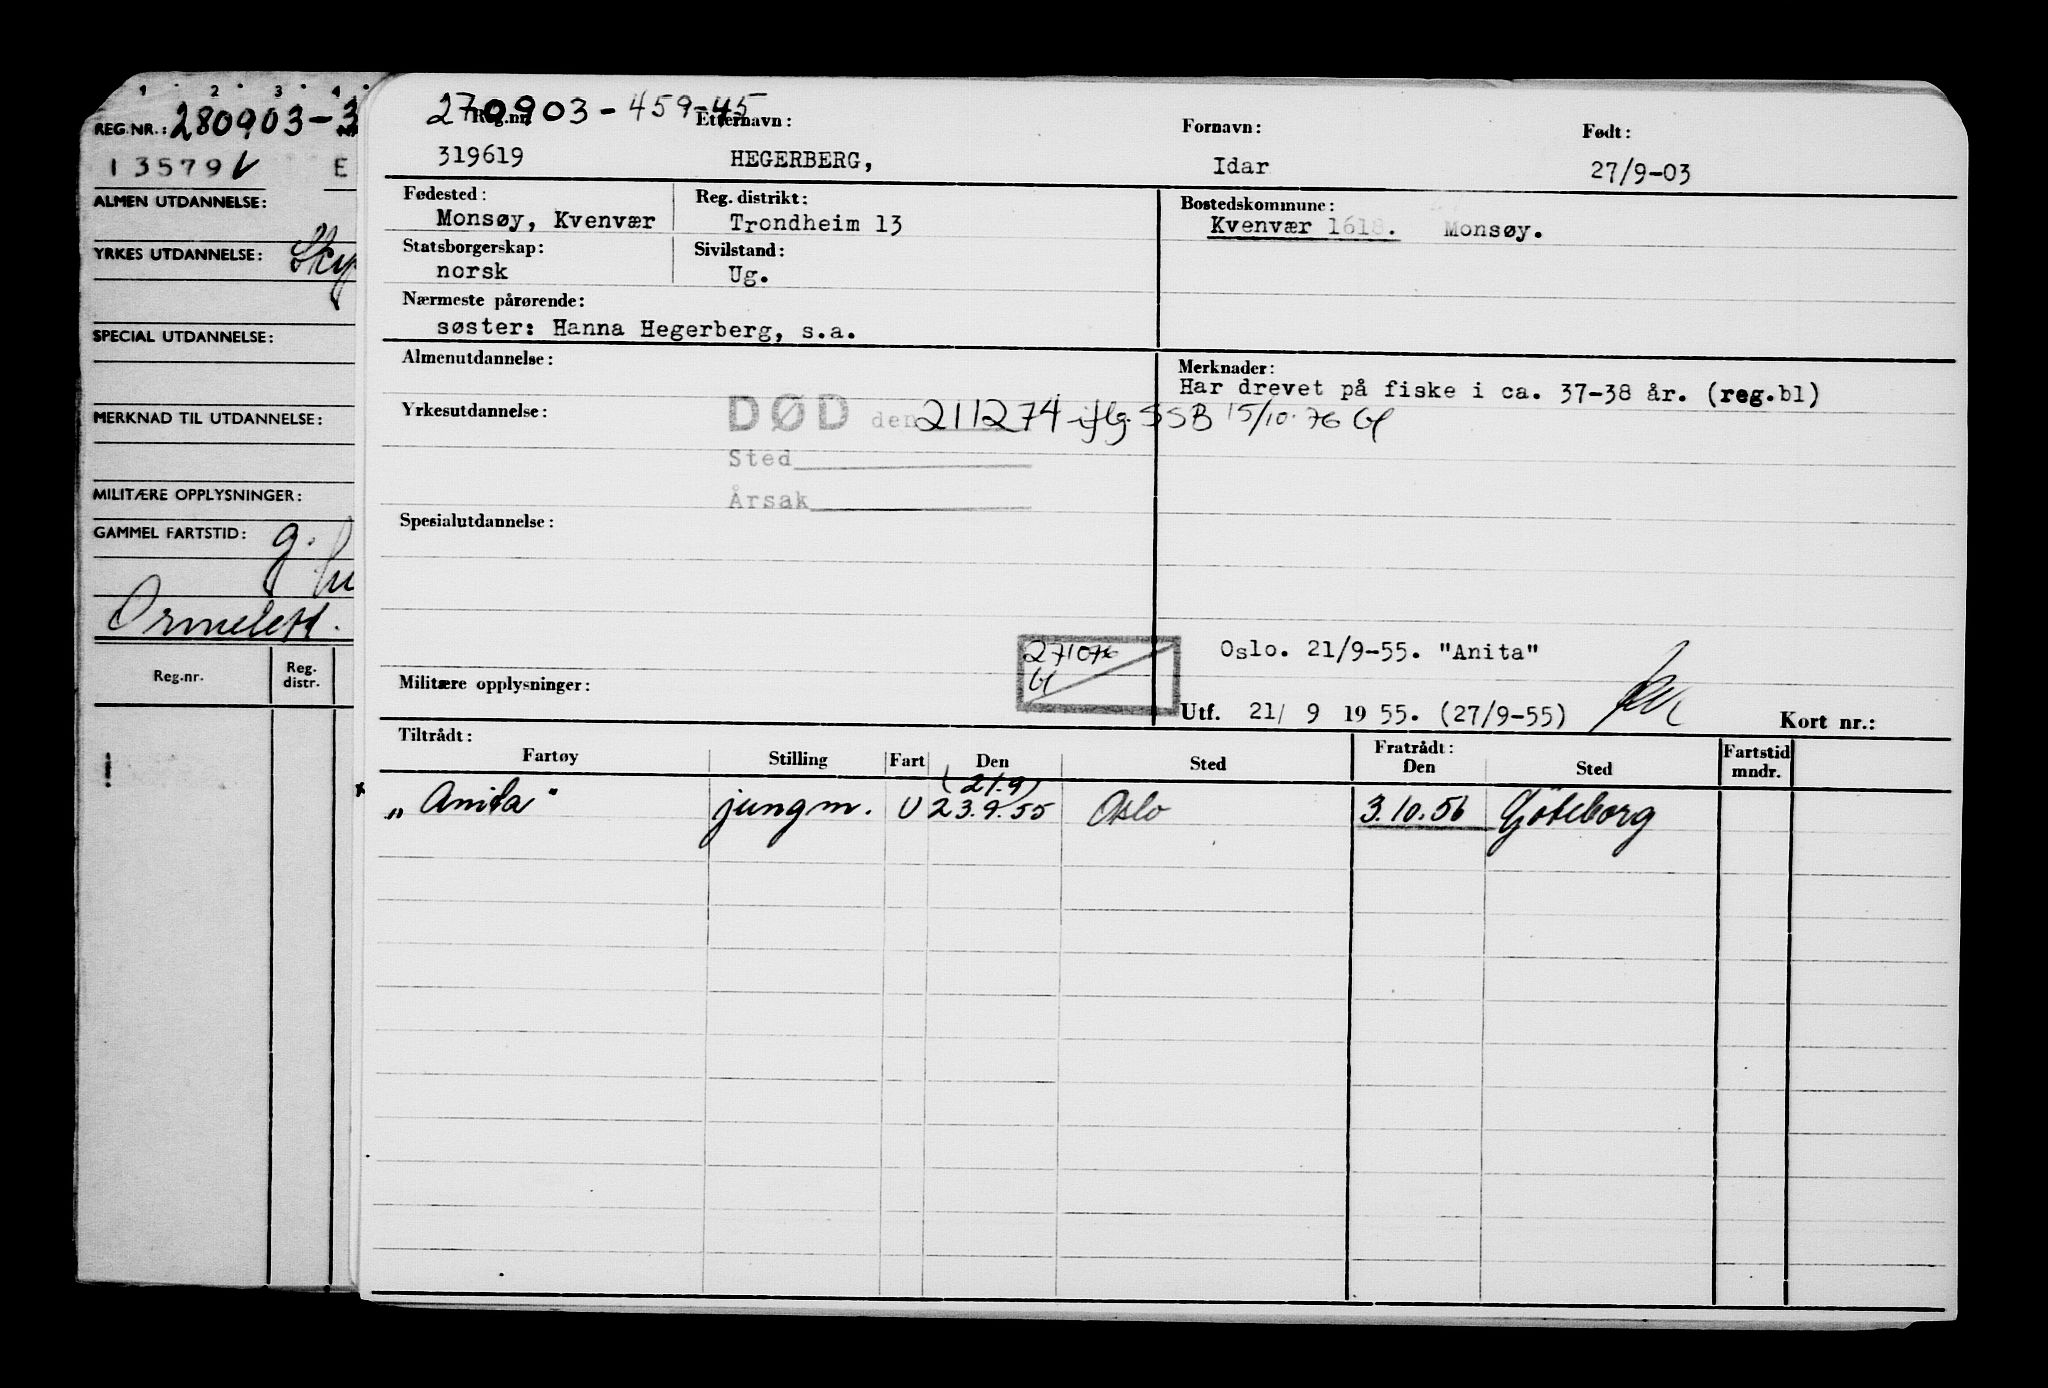 1 2 3 4
REG.NR.: 280903-3
13579 E
ALMEN UTDANNELSE:
YRKES UTDANNELSE:
SPECIAL UTDANNELSE:
MERKNAD TIL UTDANNELSE:
MILITÆRE OPPLYSNINGER:
GAMMEL FARTSTID: g.
Reg.nr. Reg. distr.
270903-459-45
Reg.nr. Etternavn: Fornavn: Født:
319619 HEGERBERG, Idar 27/9-03
Fødested: Reg. distrikt: Bostedskommune:
Monsøy, Kvenvær Trondheim 13 Kvenvær 1618. Monsøy.
Statsborgerskap: Sivilstand:
norsk Ug.
Nærmeste pårørende:
søster: Hanna Hegerberg, s.a.
Almenutdannelse: Merknader:
Har drevet på fiske i ca. 37-38 år. (reg.bl)
Yrkesutdannelse: DØD den 211274 iflg. SSB 15/10-76
Sted
Årsak
Spesialutdannelse:
271076
Oslo. 21/9-55. "Anita"
Militære opplysninger:
Utf. 21/ 9 19 55. (27/9-55) Kort nr.:
Tiltrådt: Fratrådt:
Fartøy Stilling Fart Den Sted Den Sted Fartstid mndr.
(21.9)
„Anita" jungm. U 23.9.55 Oslo 3.10.56 Göteborg